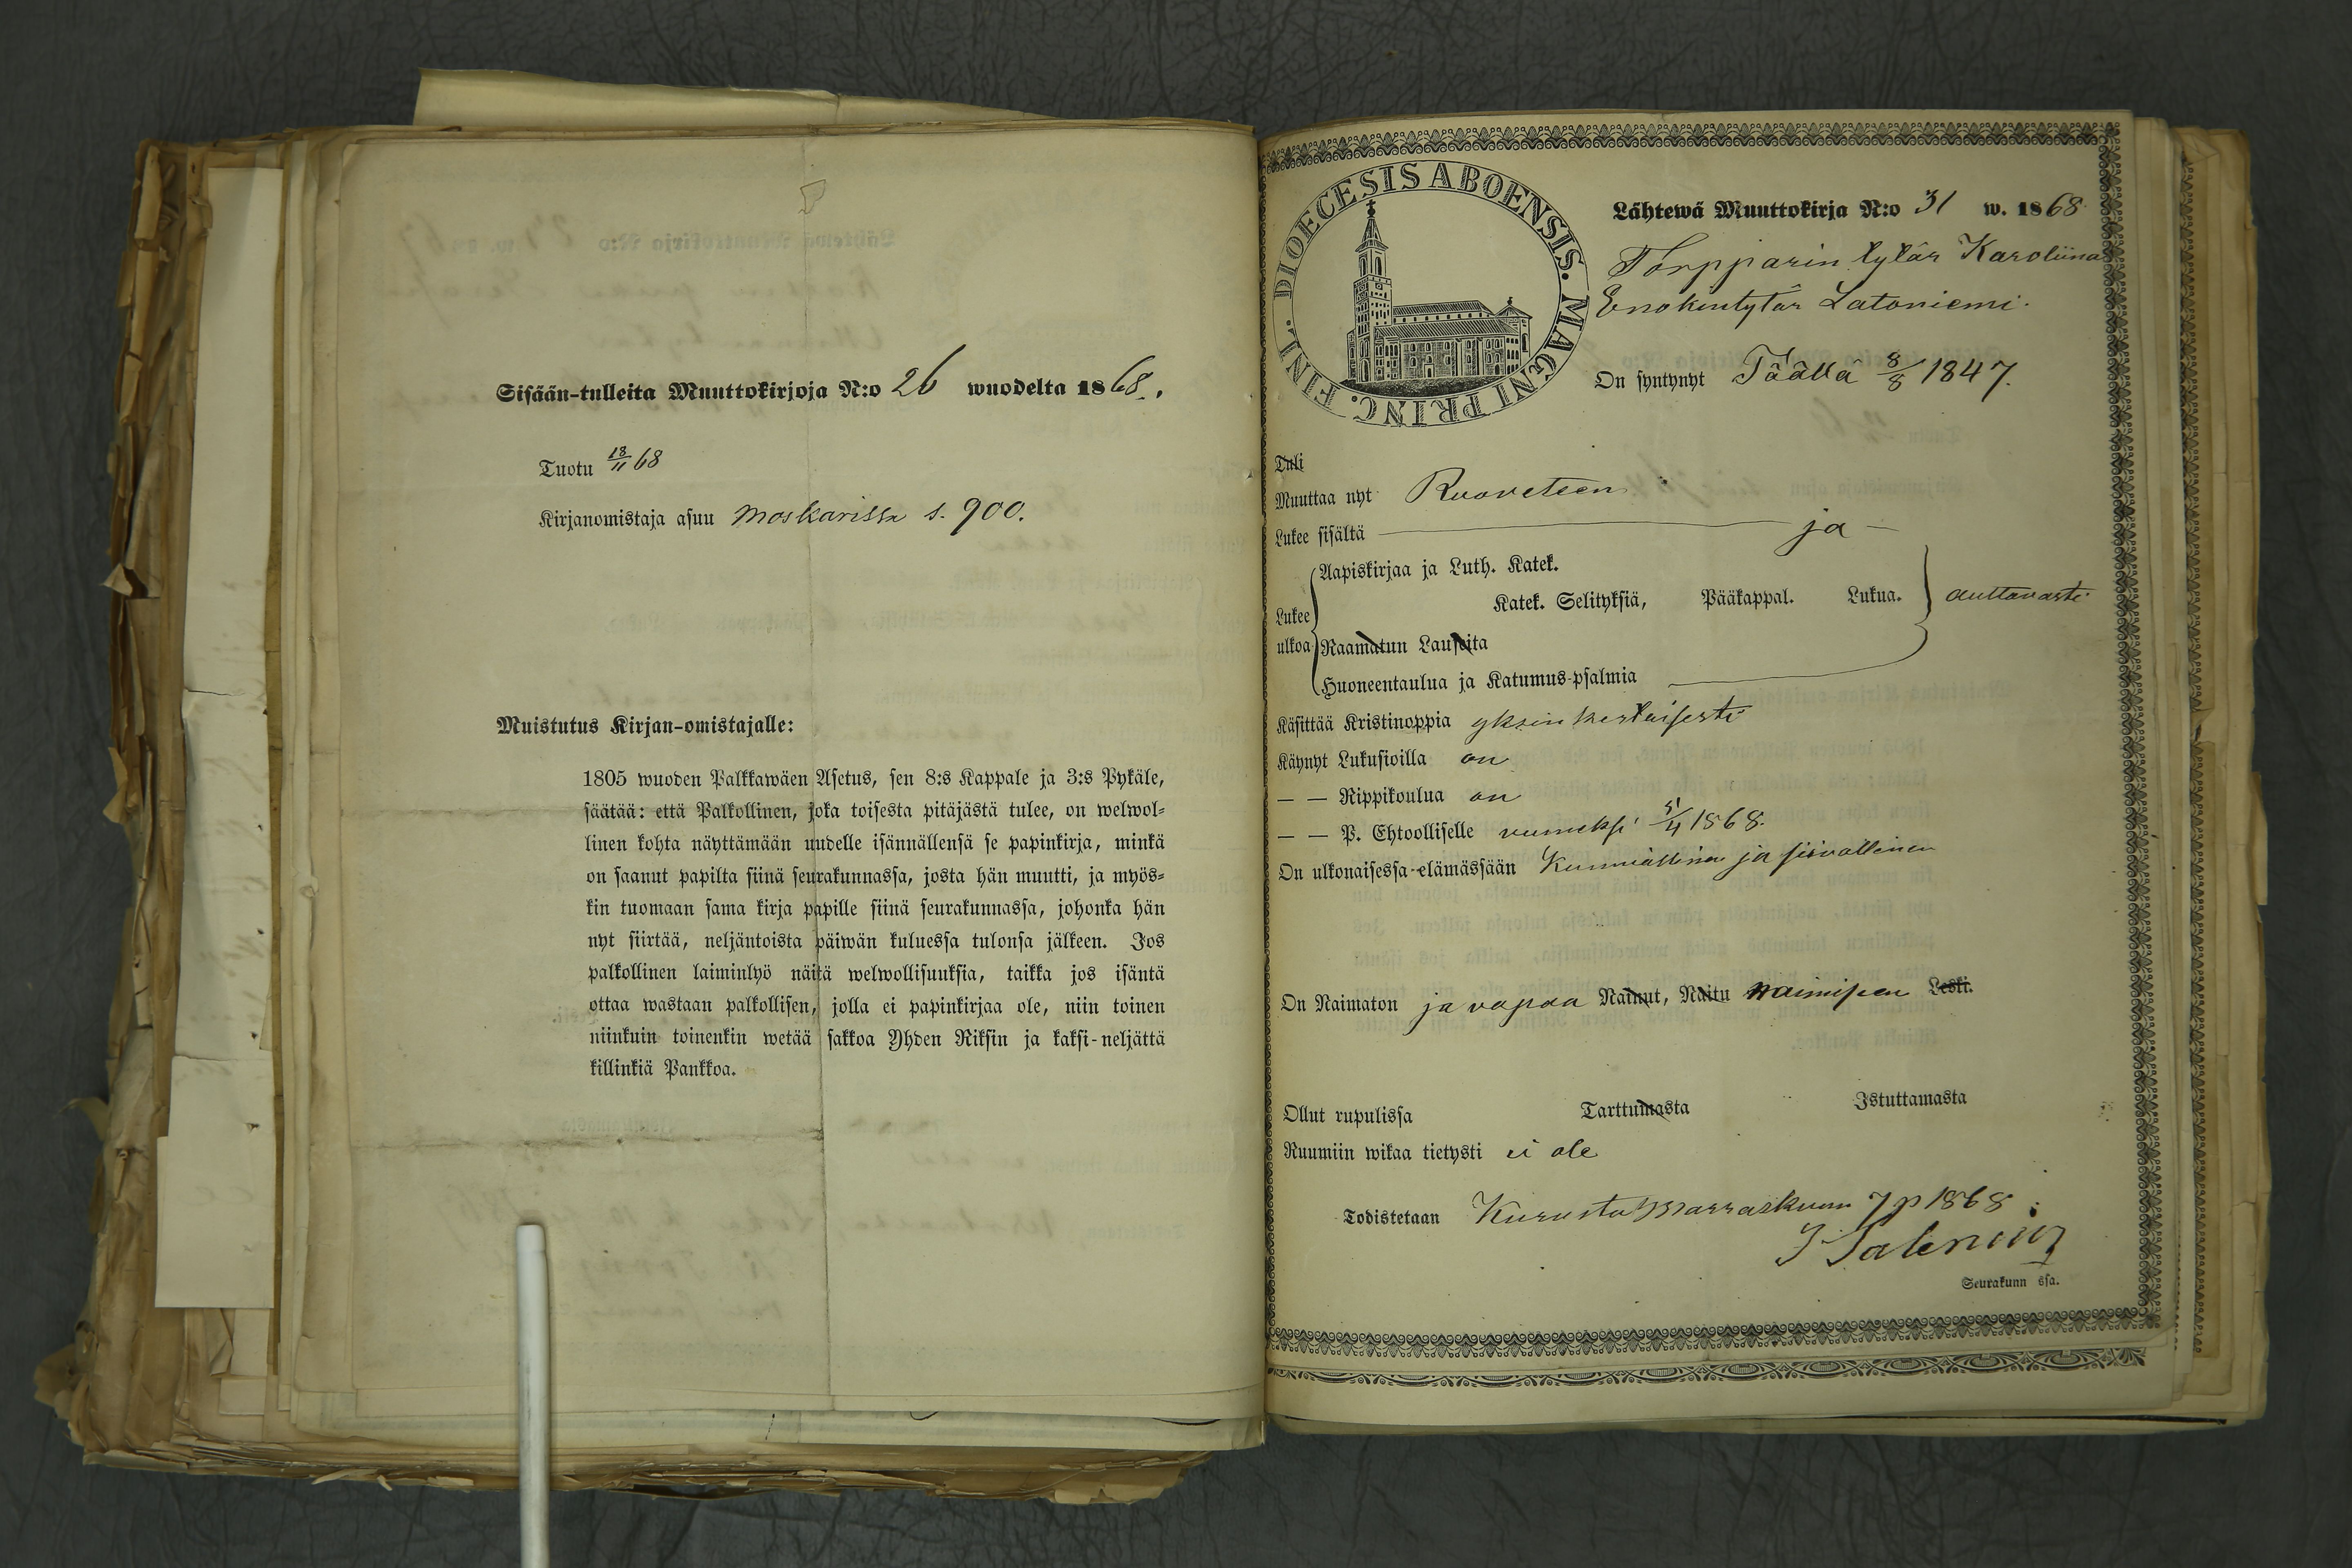 Sisään-tulleita Muuttokirjoja N:o 26 wuodelta 1868.
Tuotu 18/11 68
Kirjanomistaja asuu Moskarissa s. 900.
Muistutus Kirjan-omistajalle:
1805 wuoden Palkkawäen Asetus, sen 8:s Kappale ja 3:s Pykäle,
säätää: että Palkollinen, joka toisesta pitäjästä tulee, on welwol-
linen kohta näyttämään uudelle isännällensä se papinkirja, minkä
on saanut papilta siinä seurakunnassa, josta hän muutti, ja myös-
kin tuomaan sama kirja papille siinä seurakunnassa, johonka hän
nyt siirtää, neljäntoista päiwän kuluessa tulonsa jälkeen. Jos
palkollinen laiminlyö näitä welwollisuuksia, taikka jos isäntä
ottaa wastaan palkollisen, jolla ei papinkirjaa ole, niin toinen
niinkuin toinenkin wetää sakkoa Yhden Riksin ja kaksi-neljättä
killinkiä Pankkoa.
DIOECESIS ABOENSIS. MAGNI PRINC. FINL.
Lähtewä Muuttokirja N:o 31 w. 1868
Torpparin tytär Karoliina
Enokintytär Latoniemi.
On syntynyt Täällä 8/8 1847.
Tuli
Muuttaa nyt Ruoveteen
Lukee sisältä ja
Lukee ulkoa
Aapiskirjaa ja Luth. Katek.
Katek. Selityksiä, Pääkappal. Lukua. auttavasti
Raamatun Lauseita
Huoneentaulua ja Katumus-psalmia
Käsittää Kristinoppia yksinkertaisesti
Käynyt Lukusioilla on
— — Rippikoulua on
— — P. Ehtoolliselle viimeksi 5/4 1868.
On ulkonaisessa elämässään Kunniallinen ja siivollinen
On Naimaton ja vapaa Nainut, Naitu naimiseen Leski.
Ollut rupulissa Tarttumasta Istuttamasta
Ruumiin wikaa tietysti ei ole
Todistetaan Kurusta Marraskuun 7 p 1868
Seurakunn ssa.